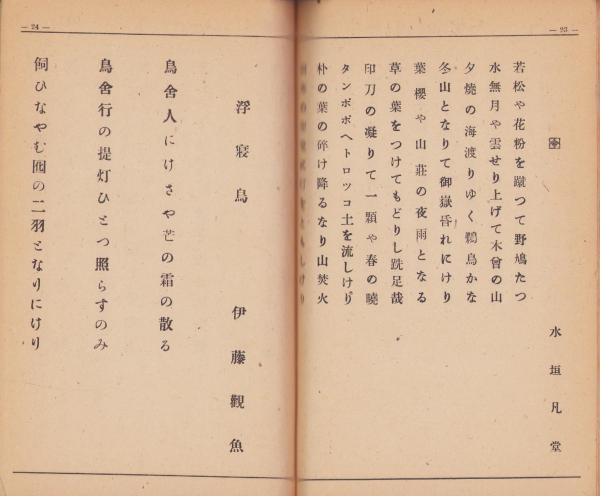 — 23 —
水垣凡堂
若松や花粉を蹴つて野鳩たつ
水無月や雲せり上げて木曾の山
夕燒の海渡りゆく鵯鳥かな
冬山となりて御嶽昏れにけり
葉櫻や山莊の夜雨となる
草の葉をつけてもどりし跣足哉
印刀の凝りて一顆や春の曉
タンポポへトロツコ土を流しけり
朴の葉の碎け降るなり山焚火
— 24 —
浮寢鳥
伊藤觀魚
鳥舍人にけさや芒の霜の散る
鳥舍行の提灯ひとつ照らすのみ
飼ひなやむ囮の二羽となりにけり